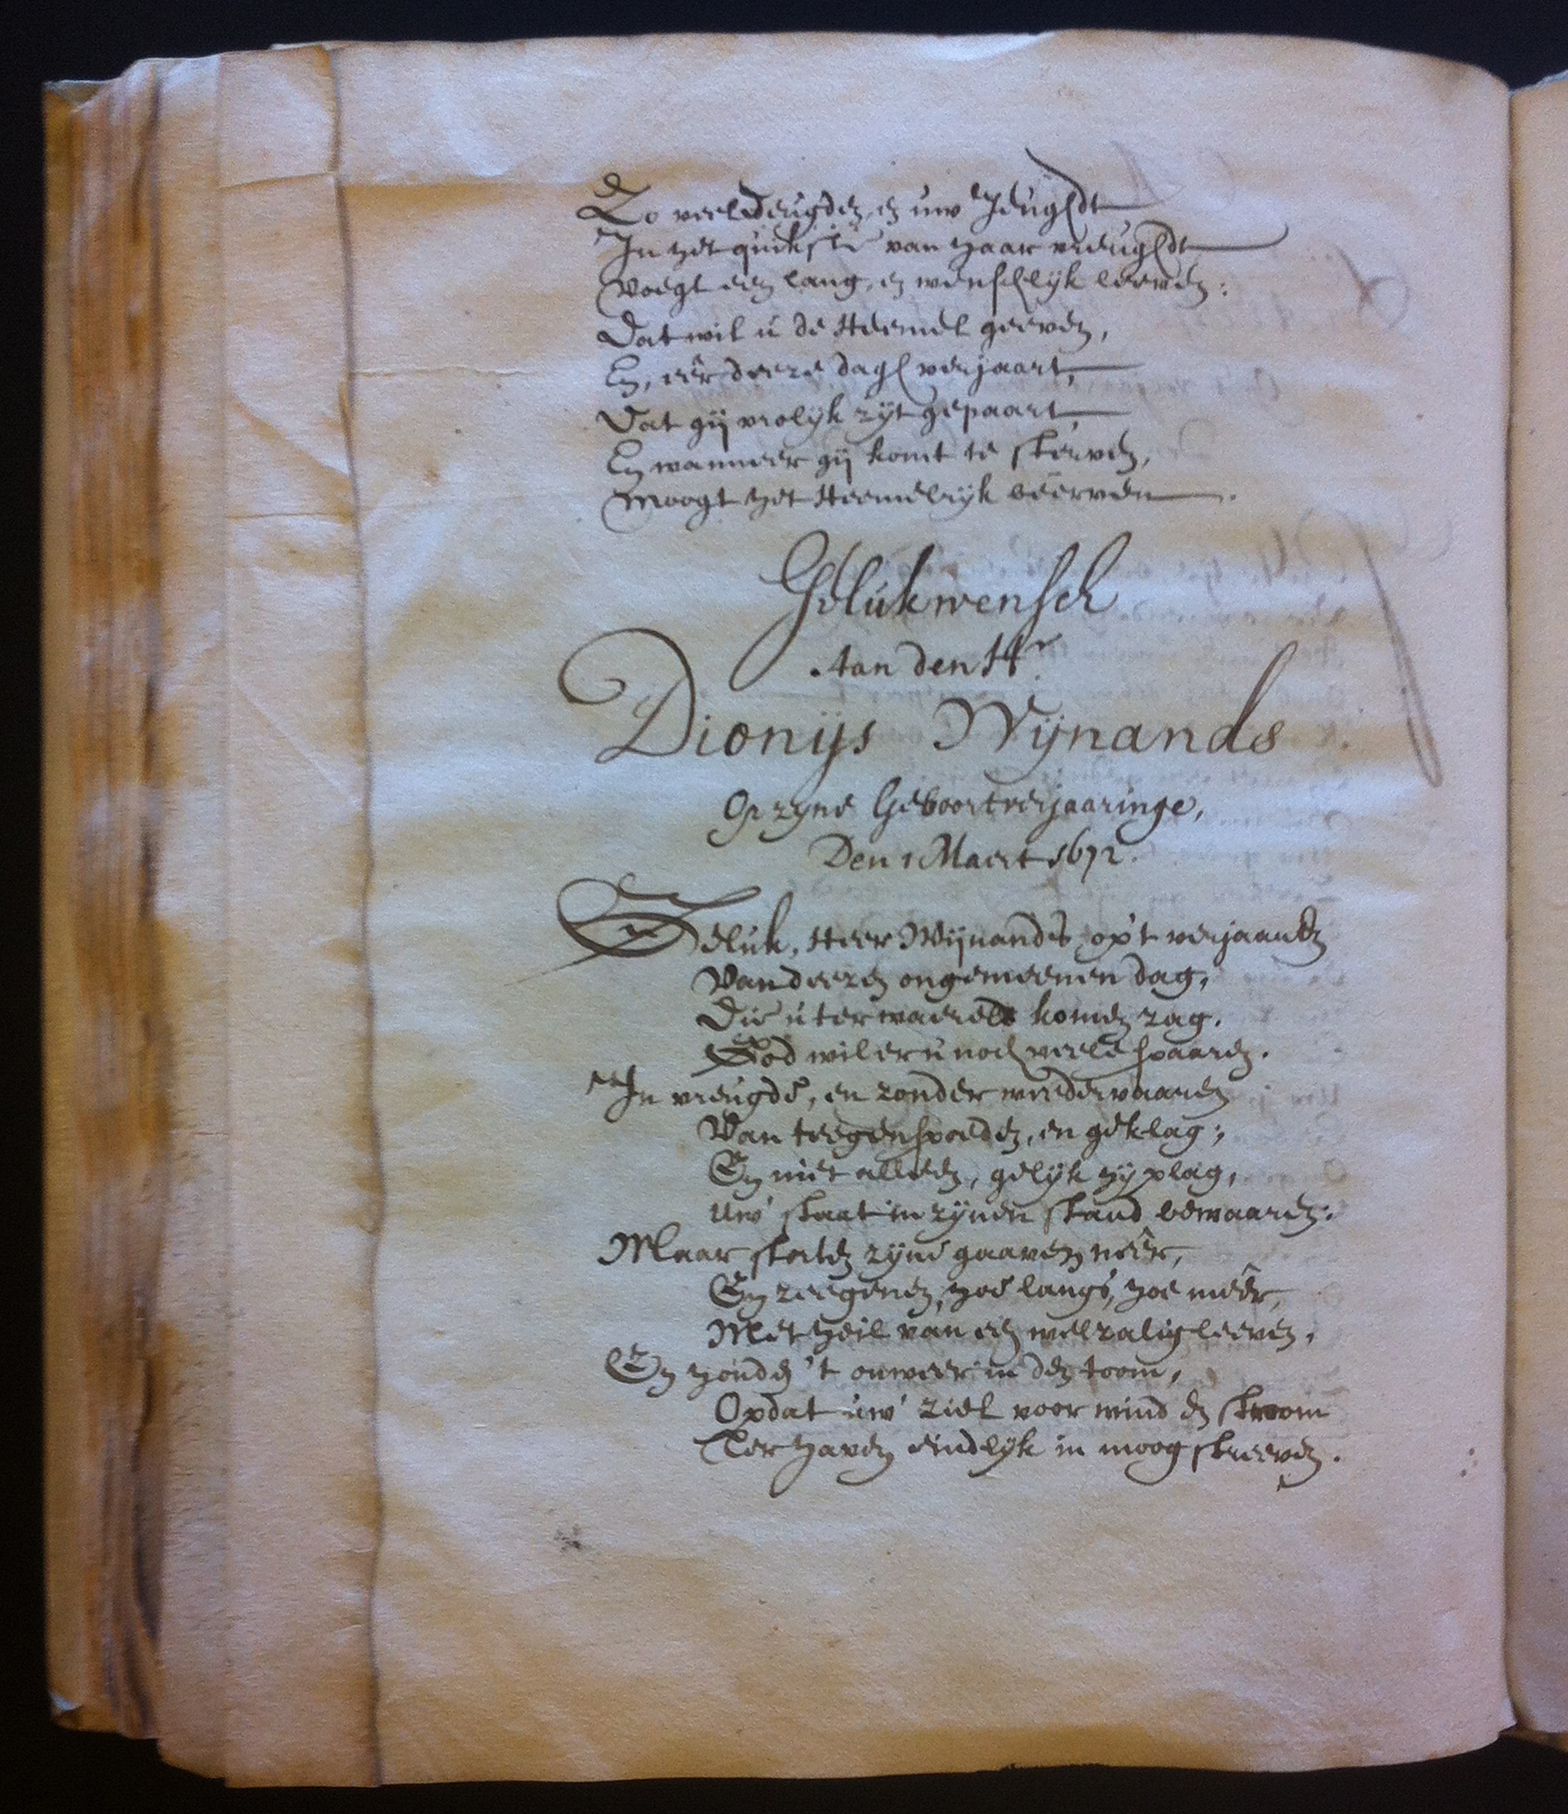 Zo veel deugden, en uw' Jeugdt
In het quikste van haar vreugdt
Voegt een lang, en wenschlyk leeven:
Dat wil u de Heemel geeven,
En, eêr deeze dag verjaart,
Dat gij vrolyk zyt gepaart
En wanneer gij komt te sterven,
Moogt het Heemelryk beërven.
Gelukwensch
Aan den Hr.
Dionijs Wijnands
Op zyne Geboortverjaaringe,
Den 1 Maert 1672.
Geluk, Heer Wijnands, op't verjaaren
Van deezen ongemeenen dag,
Die u ter waereld komen zag.
God wil er u noch veele spaaren.
In vreugde, en zonder weedervaaren
Van teegenspoeden, en geklag;
En niet alleen, gelyk hy plag,
Uw' staat in zynen stand bewaaren:
Maar storten zyne gaaven neêr,
En zeegenen, hoe langs, hoe meêr,
Met heil van een welzalig leeven,
En houden 't onweer in den toom,
Opdat uw' ziel voor wind en stroom
Ter haven eindlyk in moog streeven.